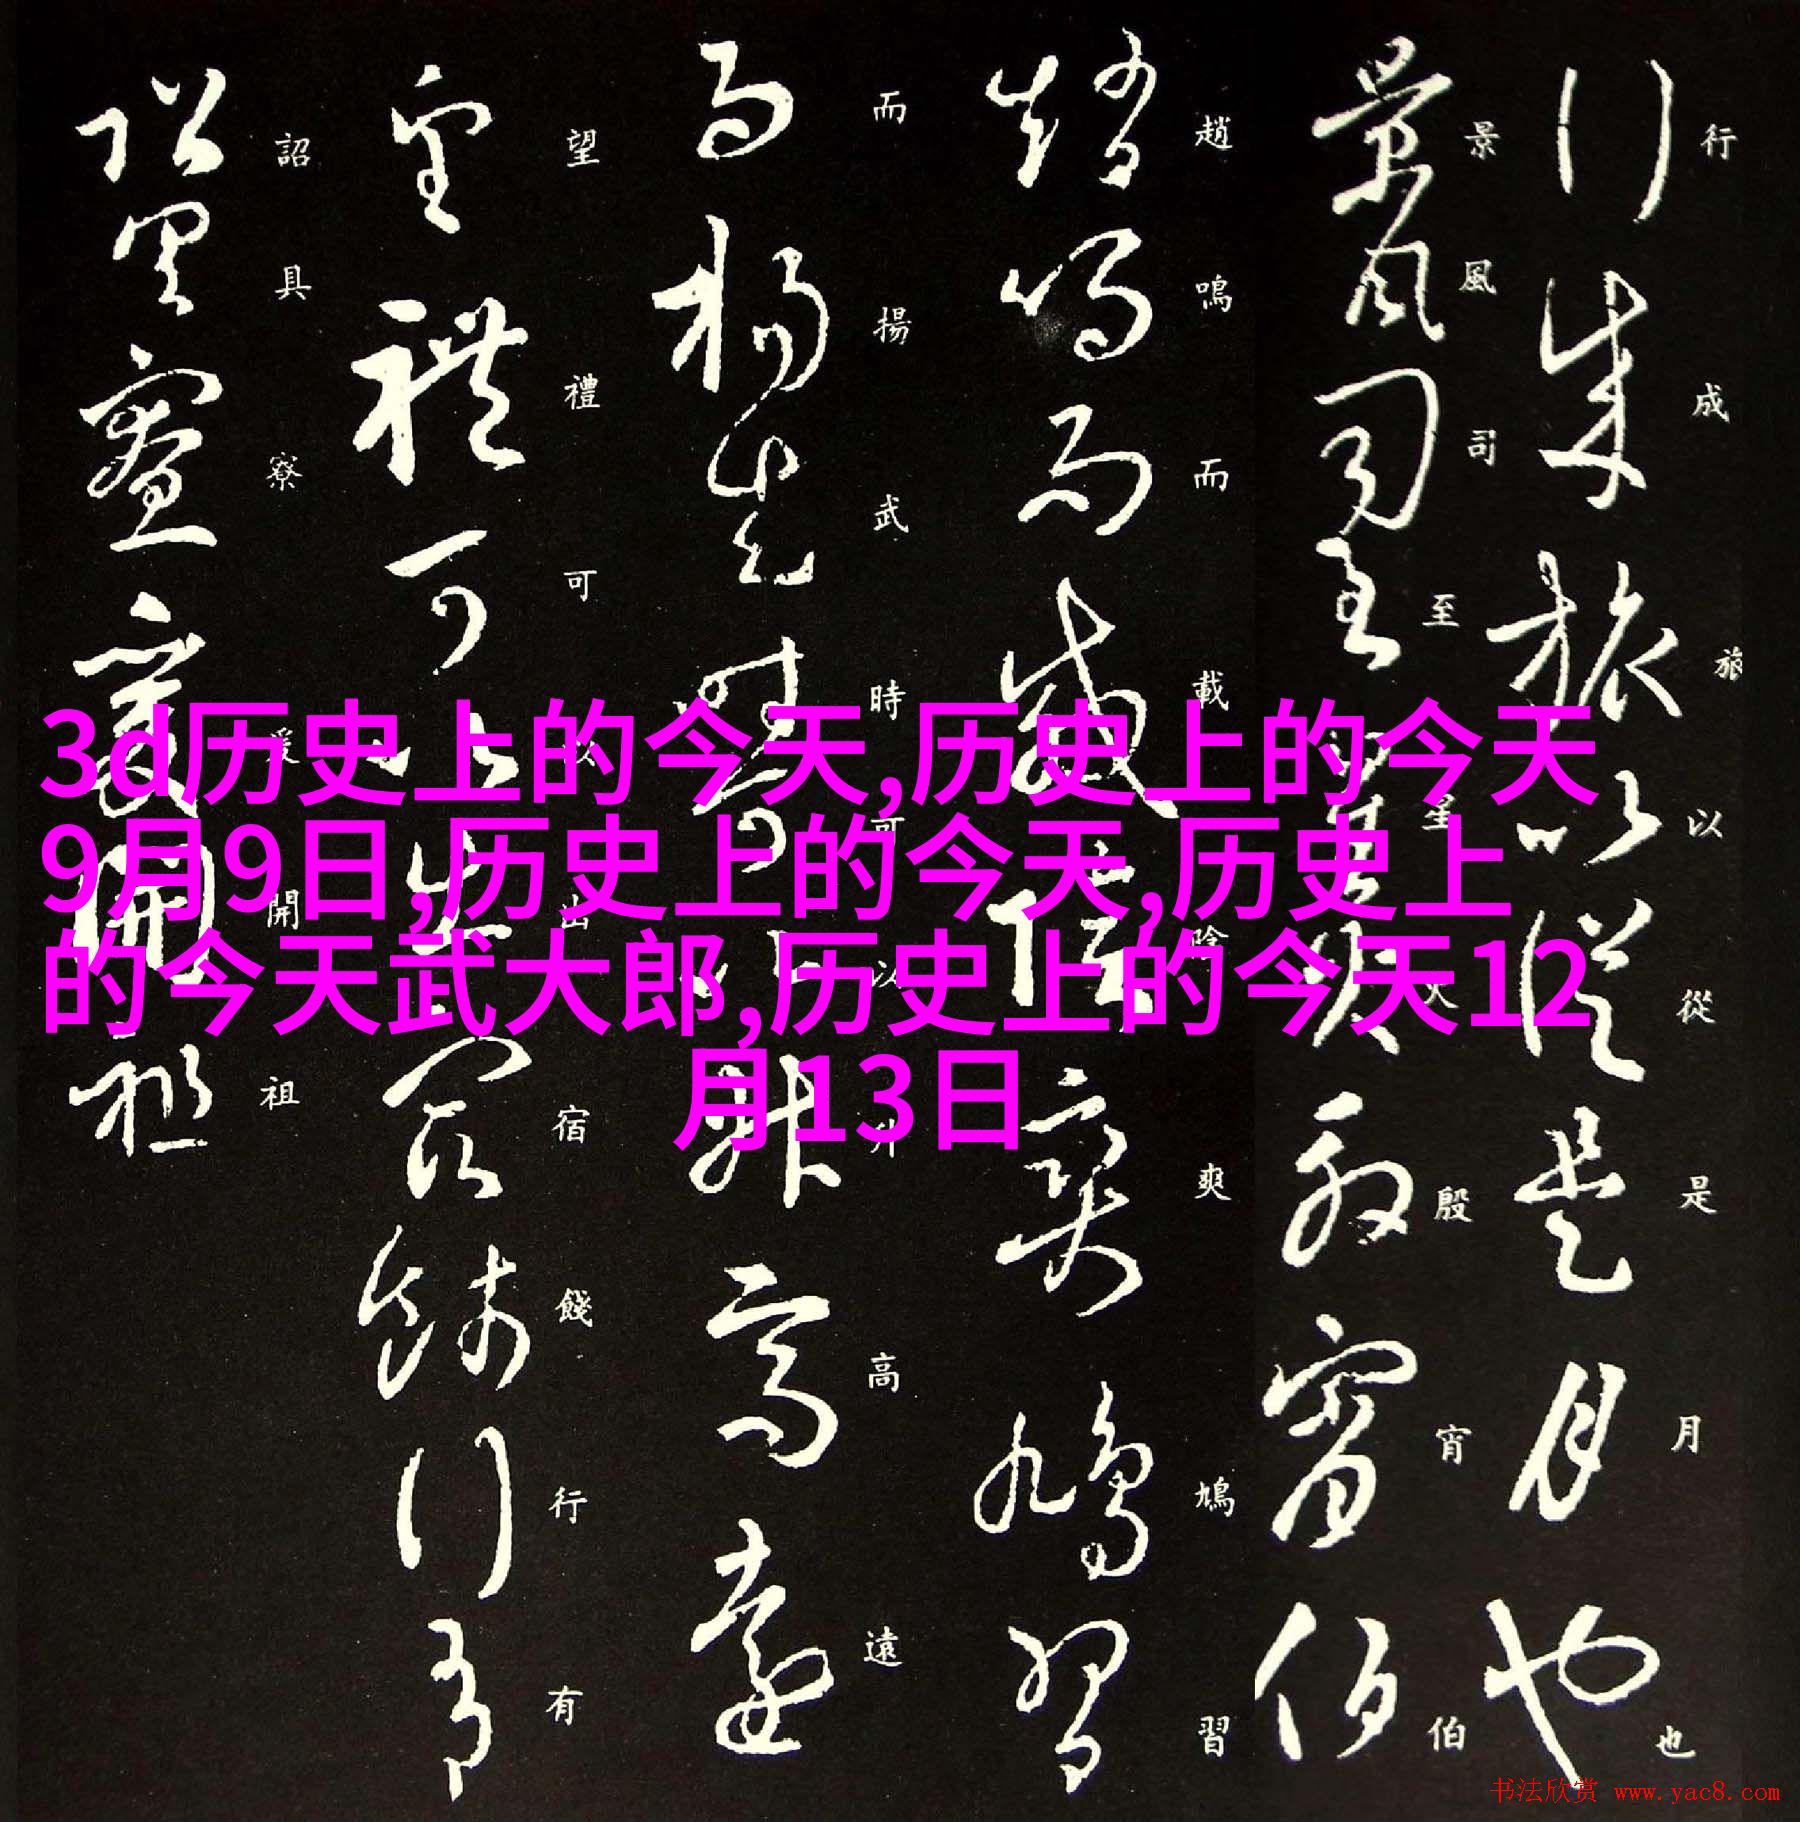 行成旅以從是月也
景風司至星火殷宵伯
趙鳴而載爽鳩習
而揚武時可以升高遠
望禮可以出宿餞行有
詔具寮爰開祖
3d历史上的今天,历史上的今天
9月9日,历史上的今天,历史上
的今天武大郎,历史上的今天12
月13日
书法欣赏 www.yac8.com